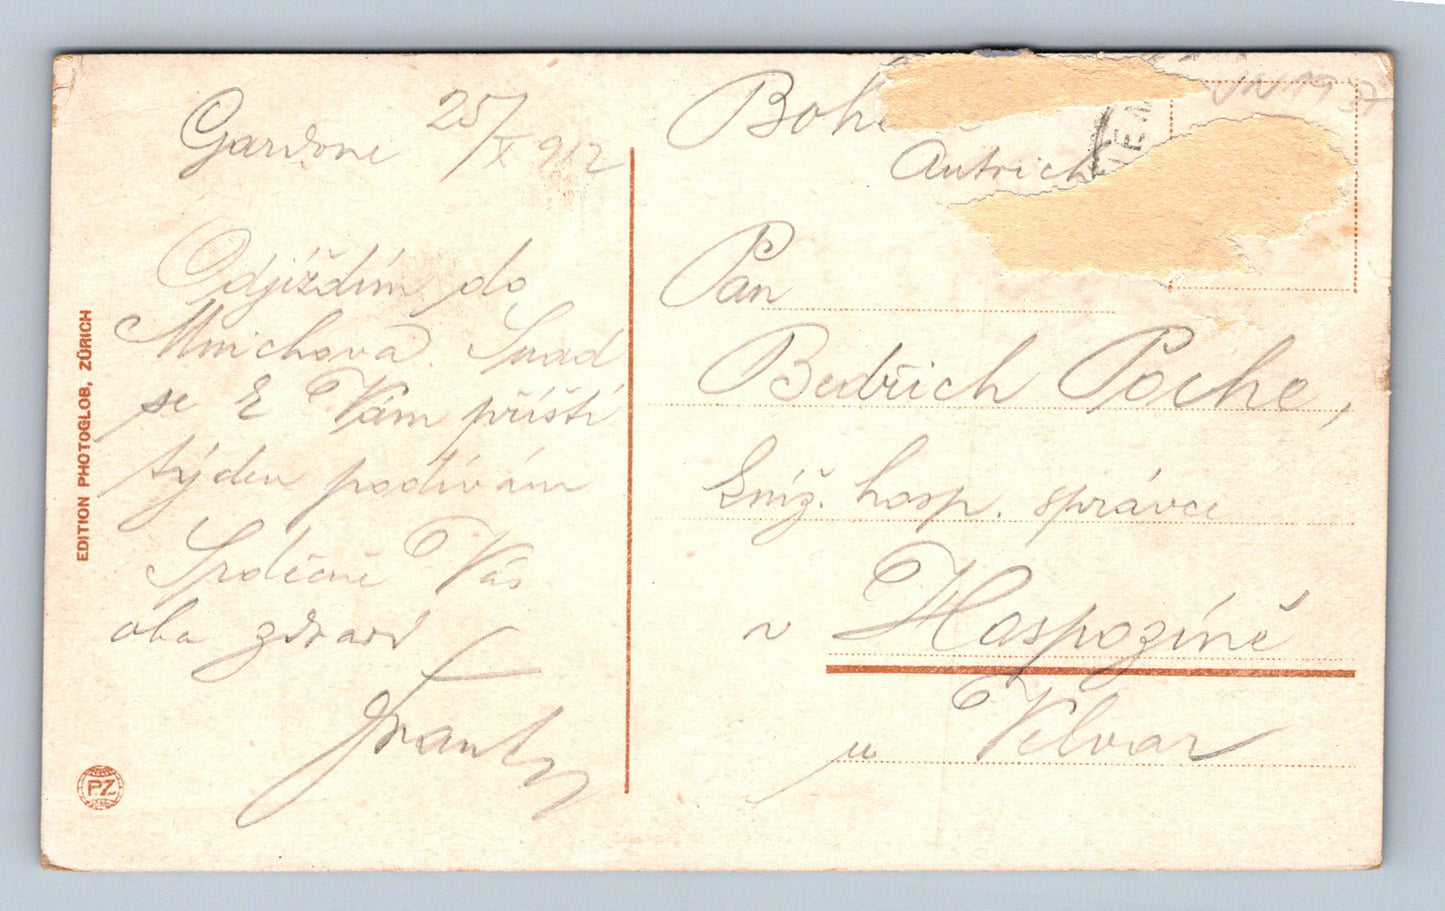 Gardone 25/X 912
Odjíždím do
Mnichova. Snad
se k Vám příští
týden podívám
Srdečně Vás
oba zdraví
EDITION PHOTOGLOB, ZÜRICH
PZ
Autrich
Pan
Bedřich Poche,
kníž. hosp. správce
v Hospozíně
u Velvar